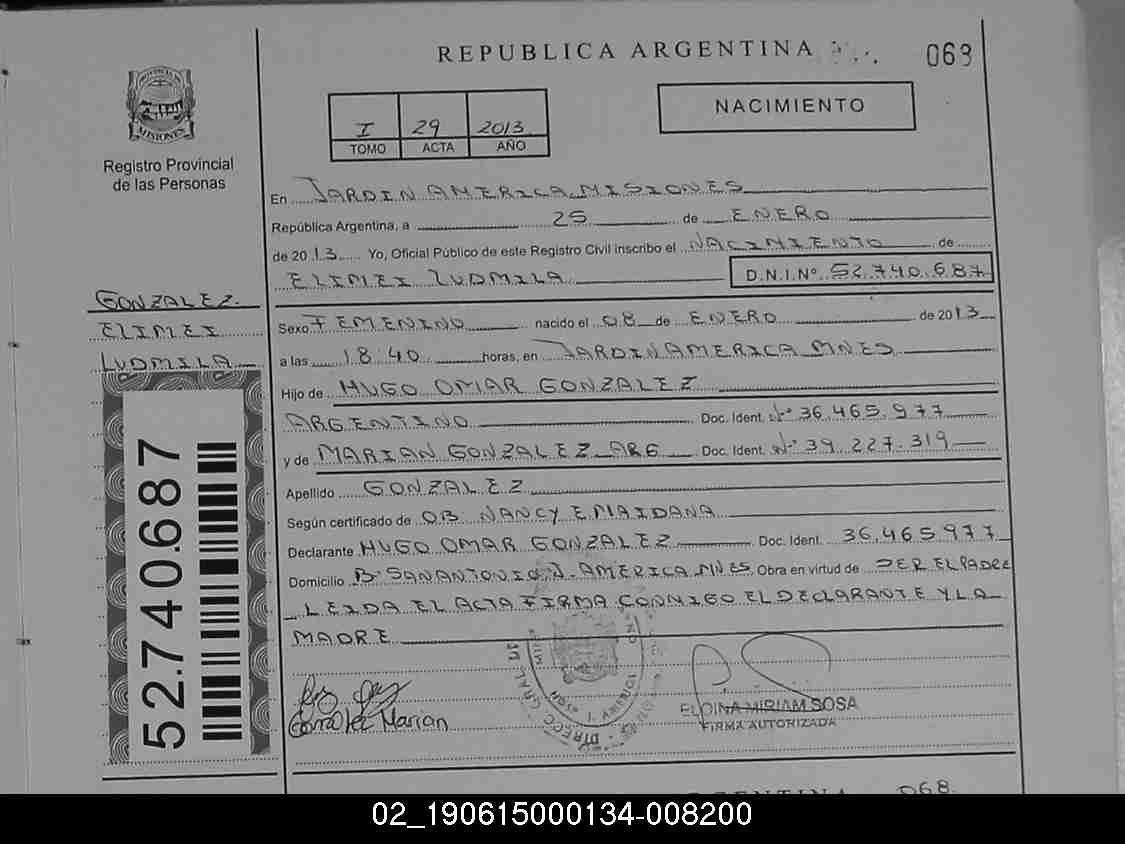 REPUBLICA ARGENTINA
063
PROVINCIA DE
MISIONES
Registro Provincial
de las Personas
I 29 2013
TOMO ACTA AÑO
NACIMIENTO
En JARDIN AMERICA MISIONES
República Argentina, a 25 de ENERO
de 2013 Yo, Oficial Público de este Registro Civil inscribo el NACIMIENTO de
ELIMEI LUDMILA D.N.I.Nº 52.740.687
GONZALEZ
ELIMEI
LUDMILA
Sexo FEMENINO nacido el 08 de ENERO de 2013
a las 18:40 horas, en JARDIN AMERICA MNES
Hijo de HUGO OMAR GONZALEZ
ARGENTINO Doc. Ident. Nº 36.465.977
y de MARIAN GONZALEZ ARG Doc. Ident. Nº 39.227.319
Apellido GONZALEZ
Según certificado de OB. NANCY E MAIDANA
Declarante HUGO OMAR GONZALEZ Doc. Ident. 36.465.977
Domicilio Bº SAN ANTONIO J. AMERICA MNES Obra en virtud de SER EL PADRE
LEIDA EL ACTA FIRMA CONMIGO EL DECLARANTE Y LA
MADRE
52.740.687
Gonzalez Marian
ELOINA MIRIAM SOSA
FIRMA AUTORIZADA
068
02_190615000134-008200